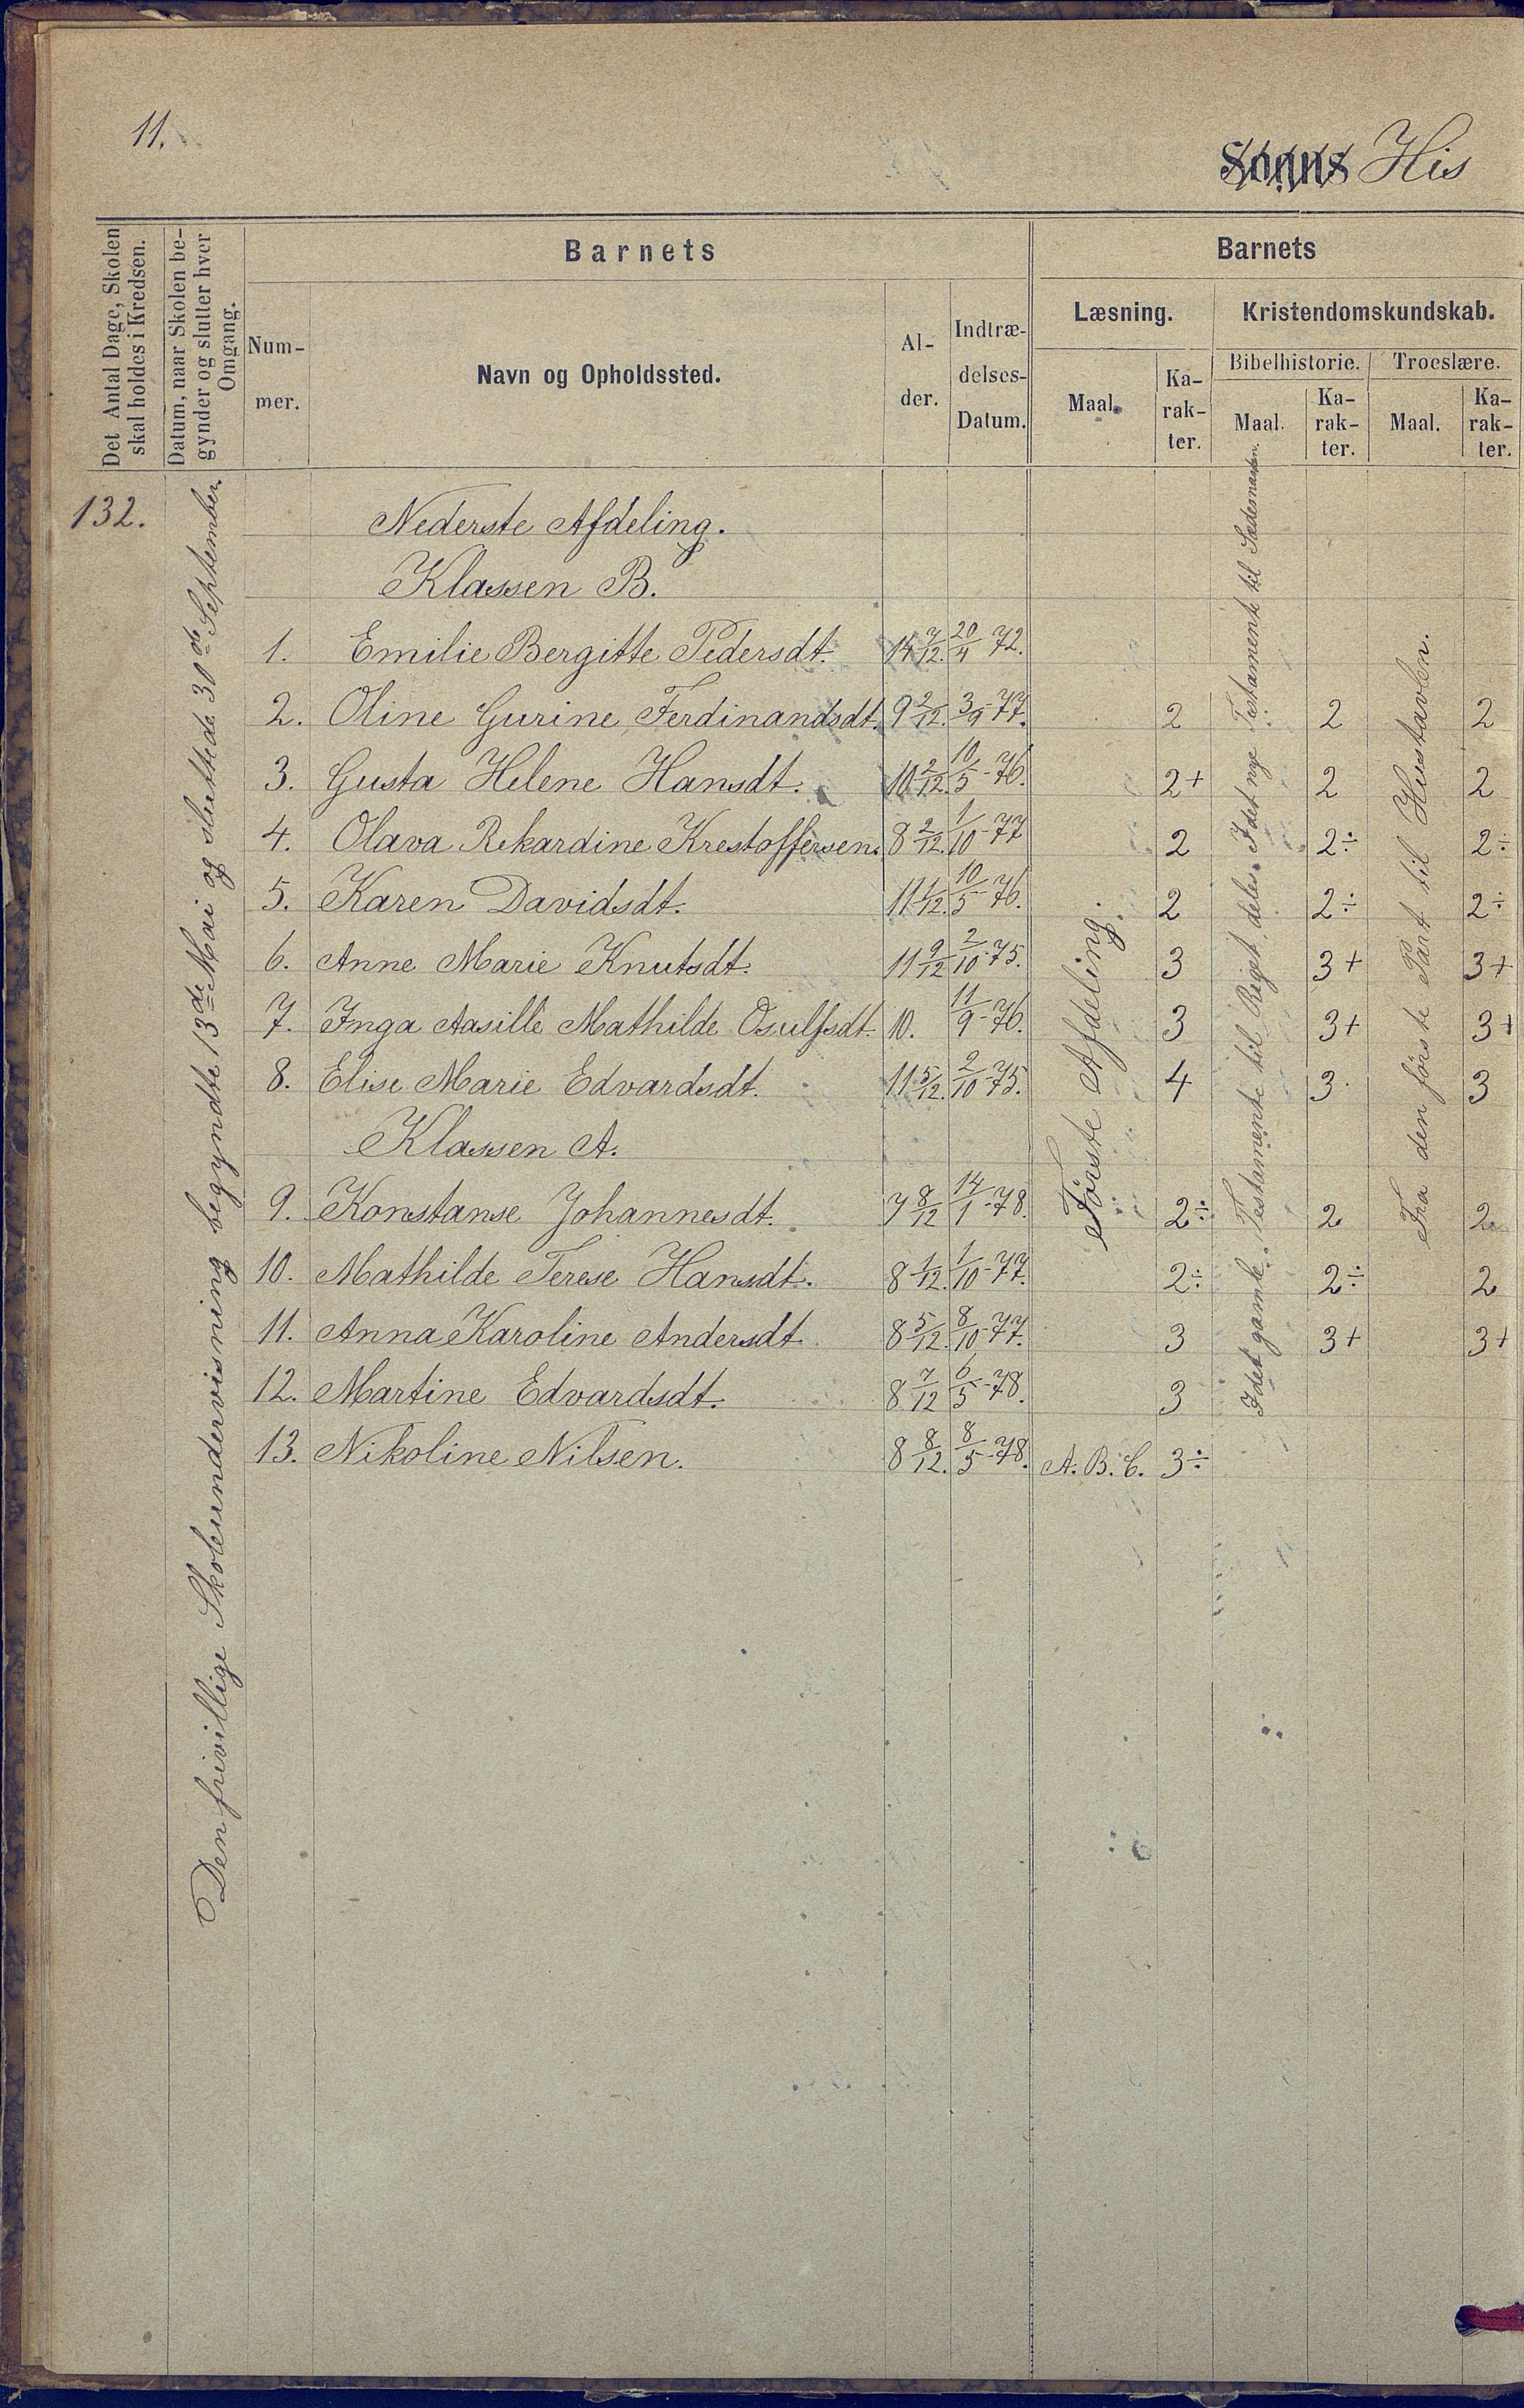 11.
Sogns His
Det Antal Dage, Skolen
skal holdes i Kredsen.
Datum, naar Skolen be-
gynder og slutter hver
Omgang.
Barnets
Num-
mer.
Navn og Opholdssted.
Al-
der.
Indtræ-
delses-
Datum.
Barnets
Læsning.
Maal.
Ka-
rak-
ter.
Kristendomskundskab.
Bibelhistorie.
Maal.
Ka-
rak-
ter.
Troeslære.
Maal.
Ka-
rak-
ter.
132.
Den frivillige Skoleundervisning begyndte 13de Mai og sluttede 30de September.
Nederste Afdeling.
Klassen B.
1. Emilie Bergitte Pedersdt. 14 7/12. 20/4 72.
2. Oline Gurine Ferdinandsdt. 9 2/12. 3/9-77. 2 2 2
3. Gusta Helene Hansdt. 10 2/12. 10/5-76. 2+ 2 2
4. Olava Rekardine Krestoffersen. 8 2/12. 1/10-77 2 2÷ 2÷
5. Karen Davidsdt. 11 1/12. 10/5-76. 2 2÷ 2÷
6. Anne Marie Knutsdt. 11 9/12 2/10-75. 3 3+ 3+
7. Inga Aasille Mathilde Osulfsdt. 10. 11/9-76. 3 3+ 3+
8. Elise Marie Edvardsdt. 11 5/12. 2/10-75. 4 3. 3
Klassen A.
9. Konstanse Johannesdt. 7 8/12 14/1-78. 2÷ 2 2
10. Mathilde Terese Hansdt. 8 1/12. 1/10-77. 2÷ 2÷ 2
11. Anna Karoline Andersdt. 8 5/12. 8/10-77. 3 3+ 3+
12. Martine Edvardsdt. 8 7/12 6/5-78. 3
13. Nikoline Nilsen. 8 8/12. 8/5-78. A. B. C. 3÷
Første Afdeling.
I det gamle Testamente til Riget deles. I det nye Testamente til
Fra den første Part til Hustavlen.